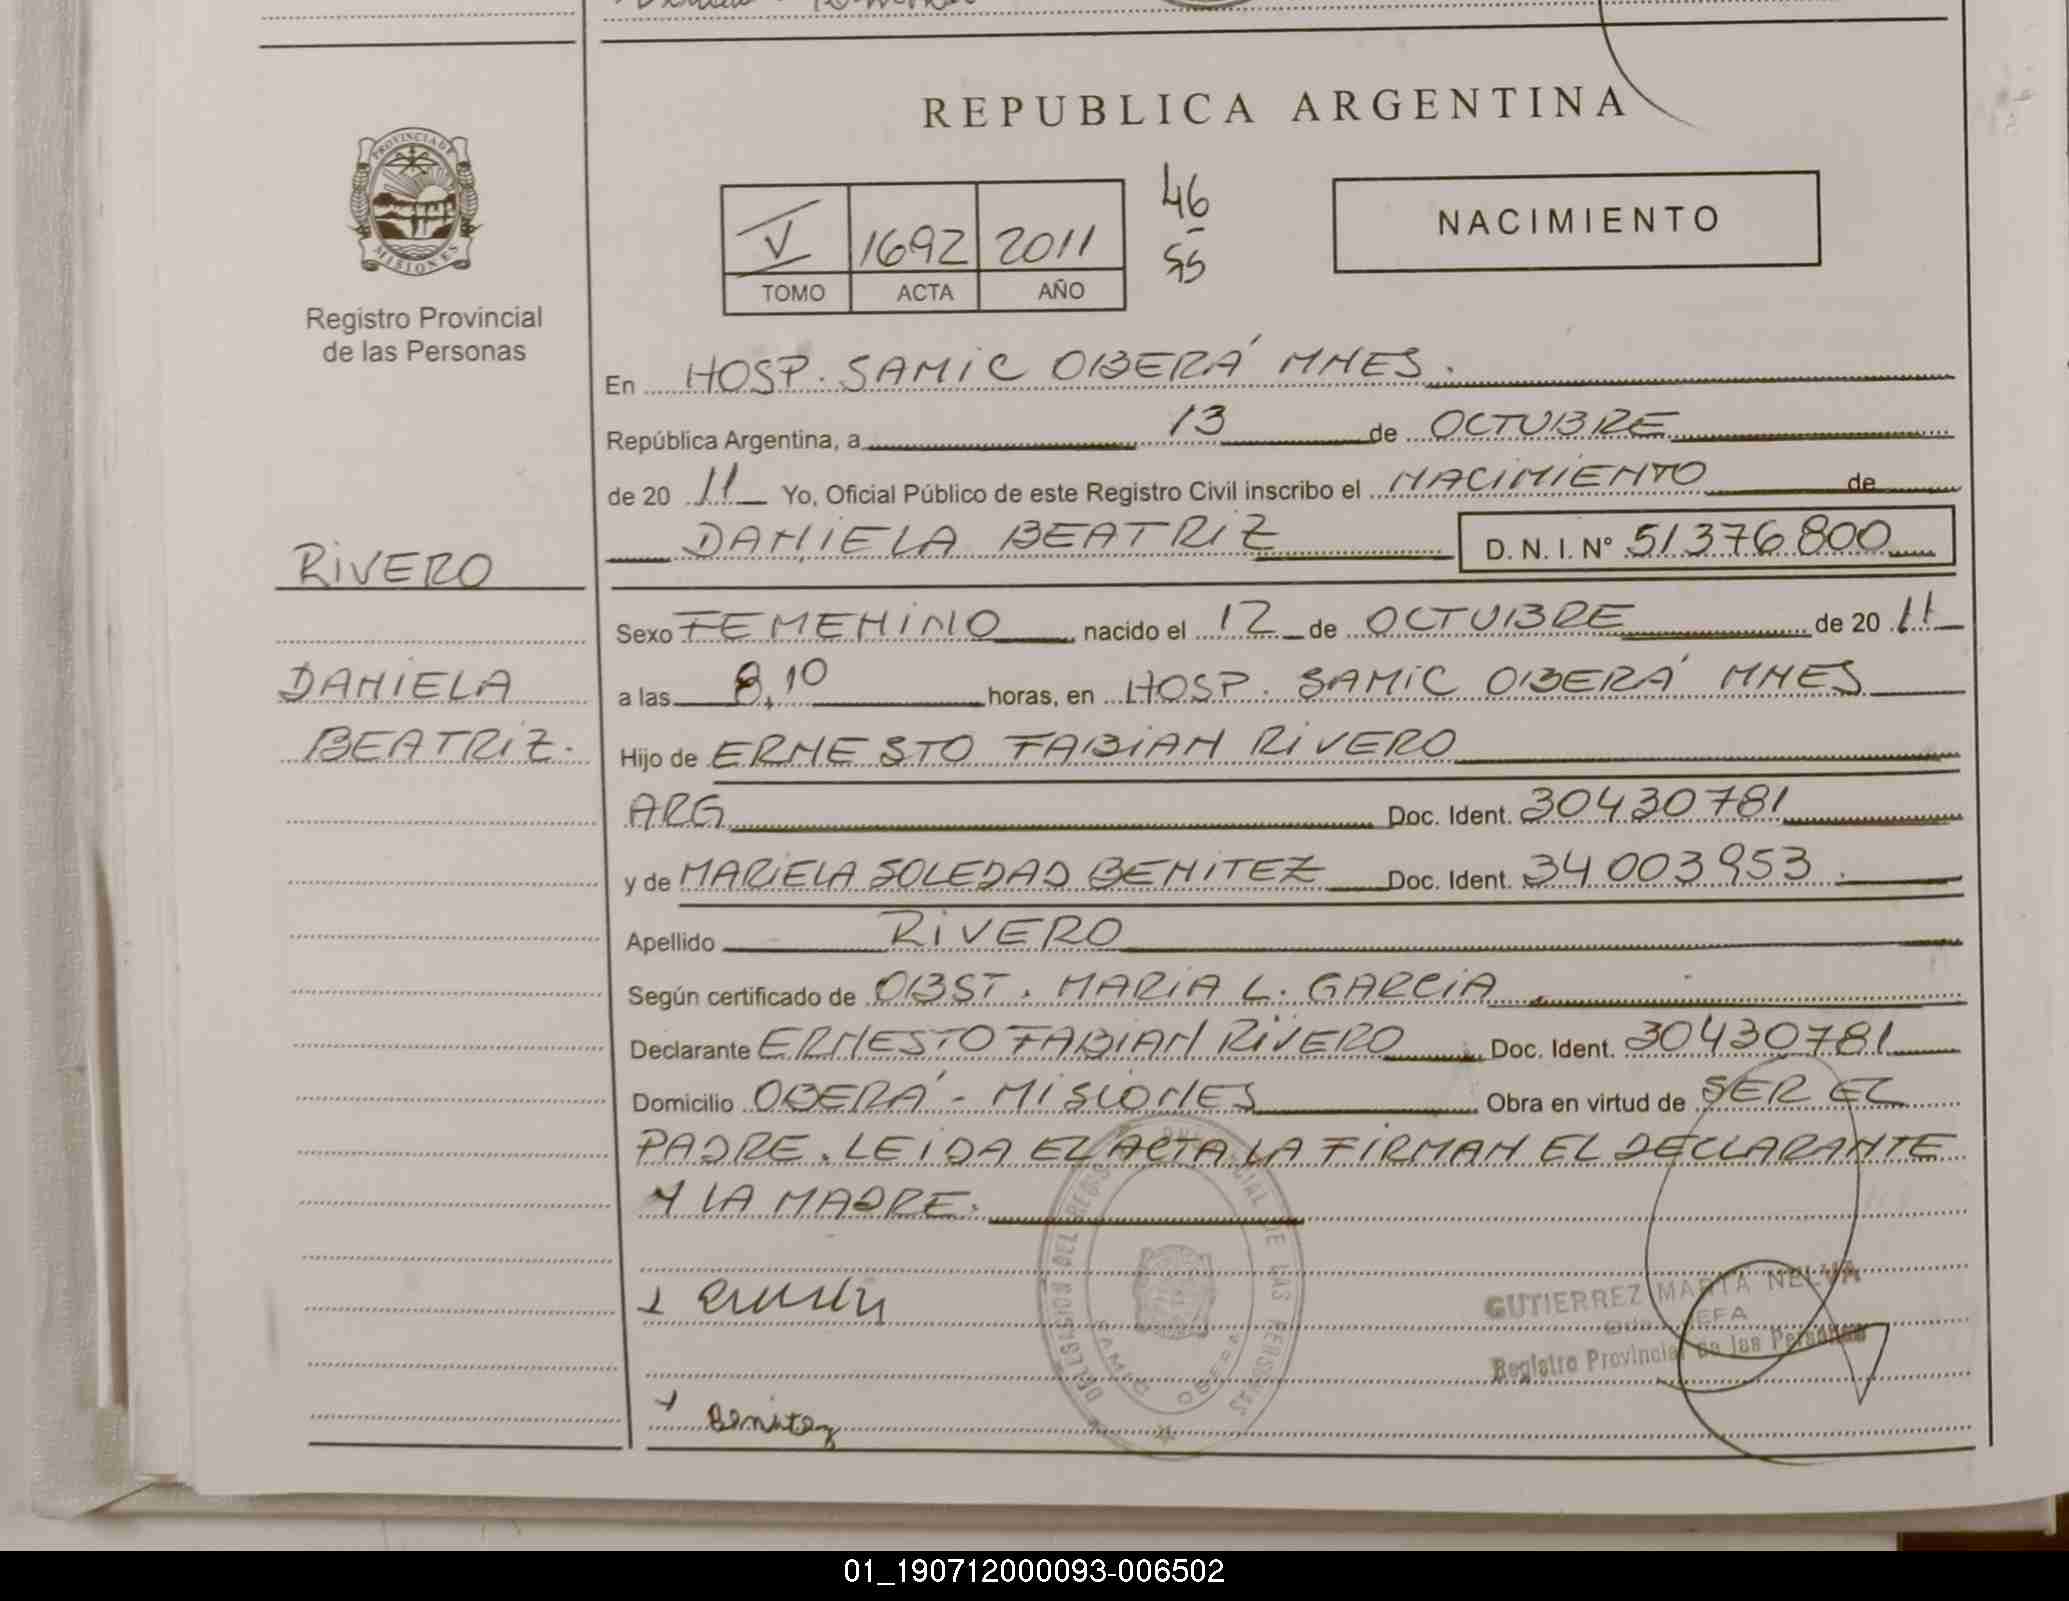 REPUBLICA ARGENTINA
PROVINCIA DE
MISIONES
Registro Provincial
de las Personas
V 1692 2011
TOMO ACTA AÑO
46
55
NACIMIENTO
En HOSP. SAMIC OBERÁ MNES.
República Argentina, a 13 de OCTUBRE
de 20 11 Yo, Oficial Público de este Registro Civil inscribo el NACIMIENTO de
DANIELA BEATRIZ D. N. I. Nº 51376800
RIVERO
DANIELA
BEATRIZ.
Sexo FEMENINO nacido el 12 de OCTUBRE de 20 11
a las 8,10 horas, en HOSP. SAMIC OBERÁ MNES
Hijo de ERNESTO FABIAN RIVERO
ARG Doc. Ident. 30430781
y de MARIELA SOLEDAD BENITEZ Doc. Ident. 34003953.
Apellido RIVERO
Según certificado de OBST. MARIA L. GARCIA
Declarante ERNESTO FABIAN RIVERO Doc. Ident. 30430781
Domicilio OBERÁ - MISIONES Obra en virtud de SER EL
PADRE. LEIDA EL ACTA LA FIRMAN EL DECLARANTE
Y LA MADRE.
DELEGACION DEL REGISTRO PROVINCIAL DE LAS PERSONAS
SAMIC OBERA
GUTIERREZ MARTA NELVA
JEFA
Registro Provincial de las Personas
Benitez
01_190712000093-006502